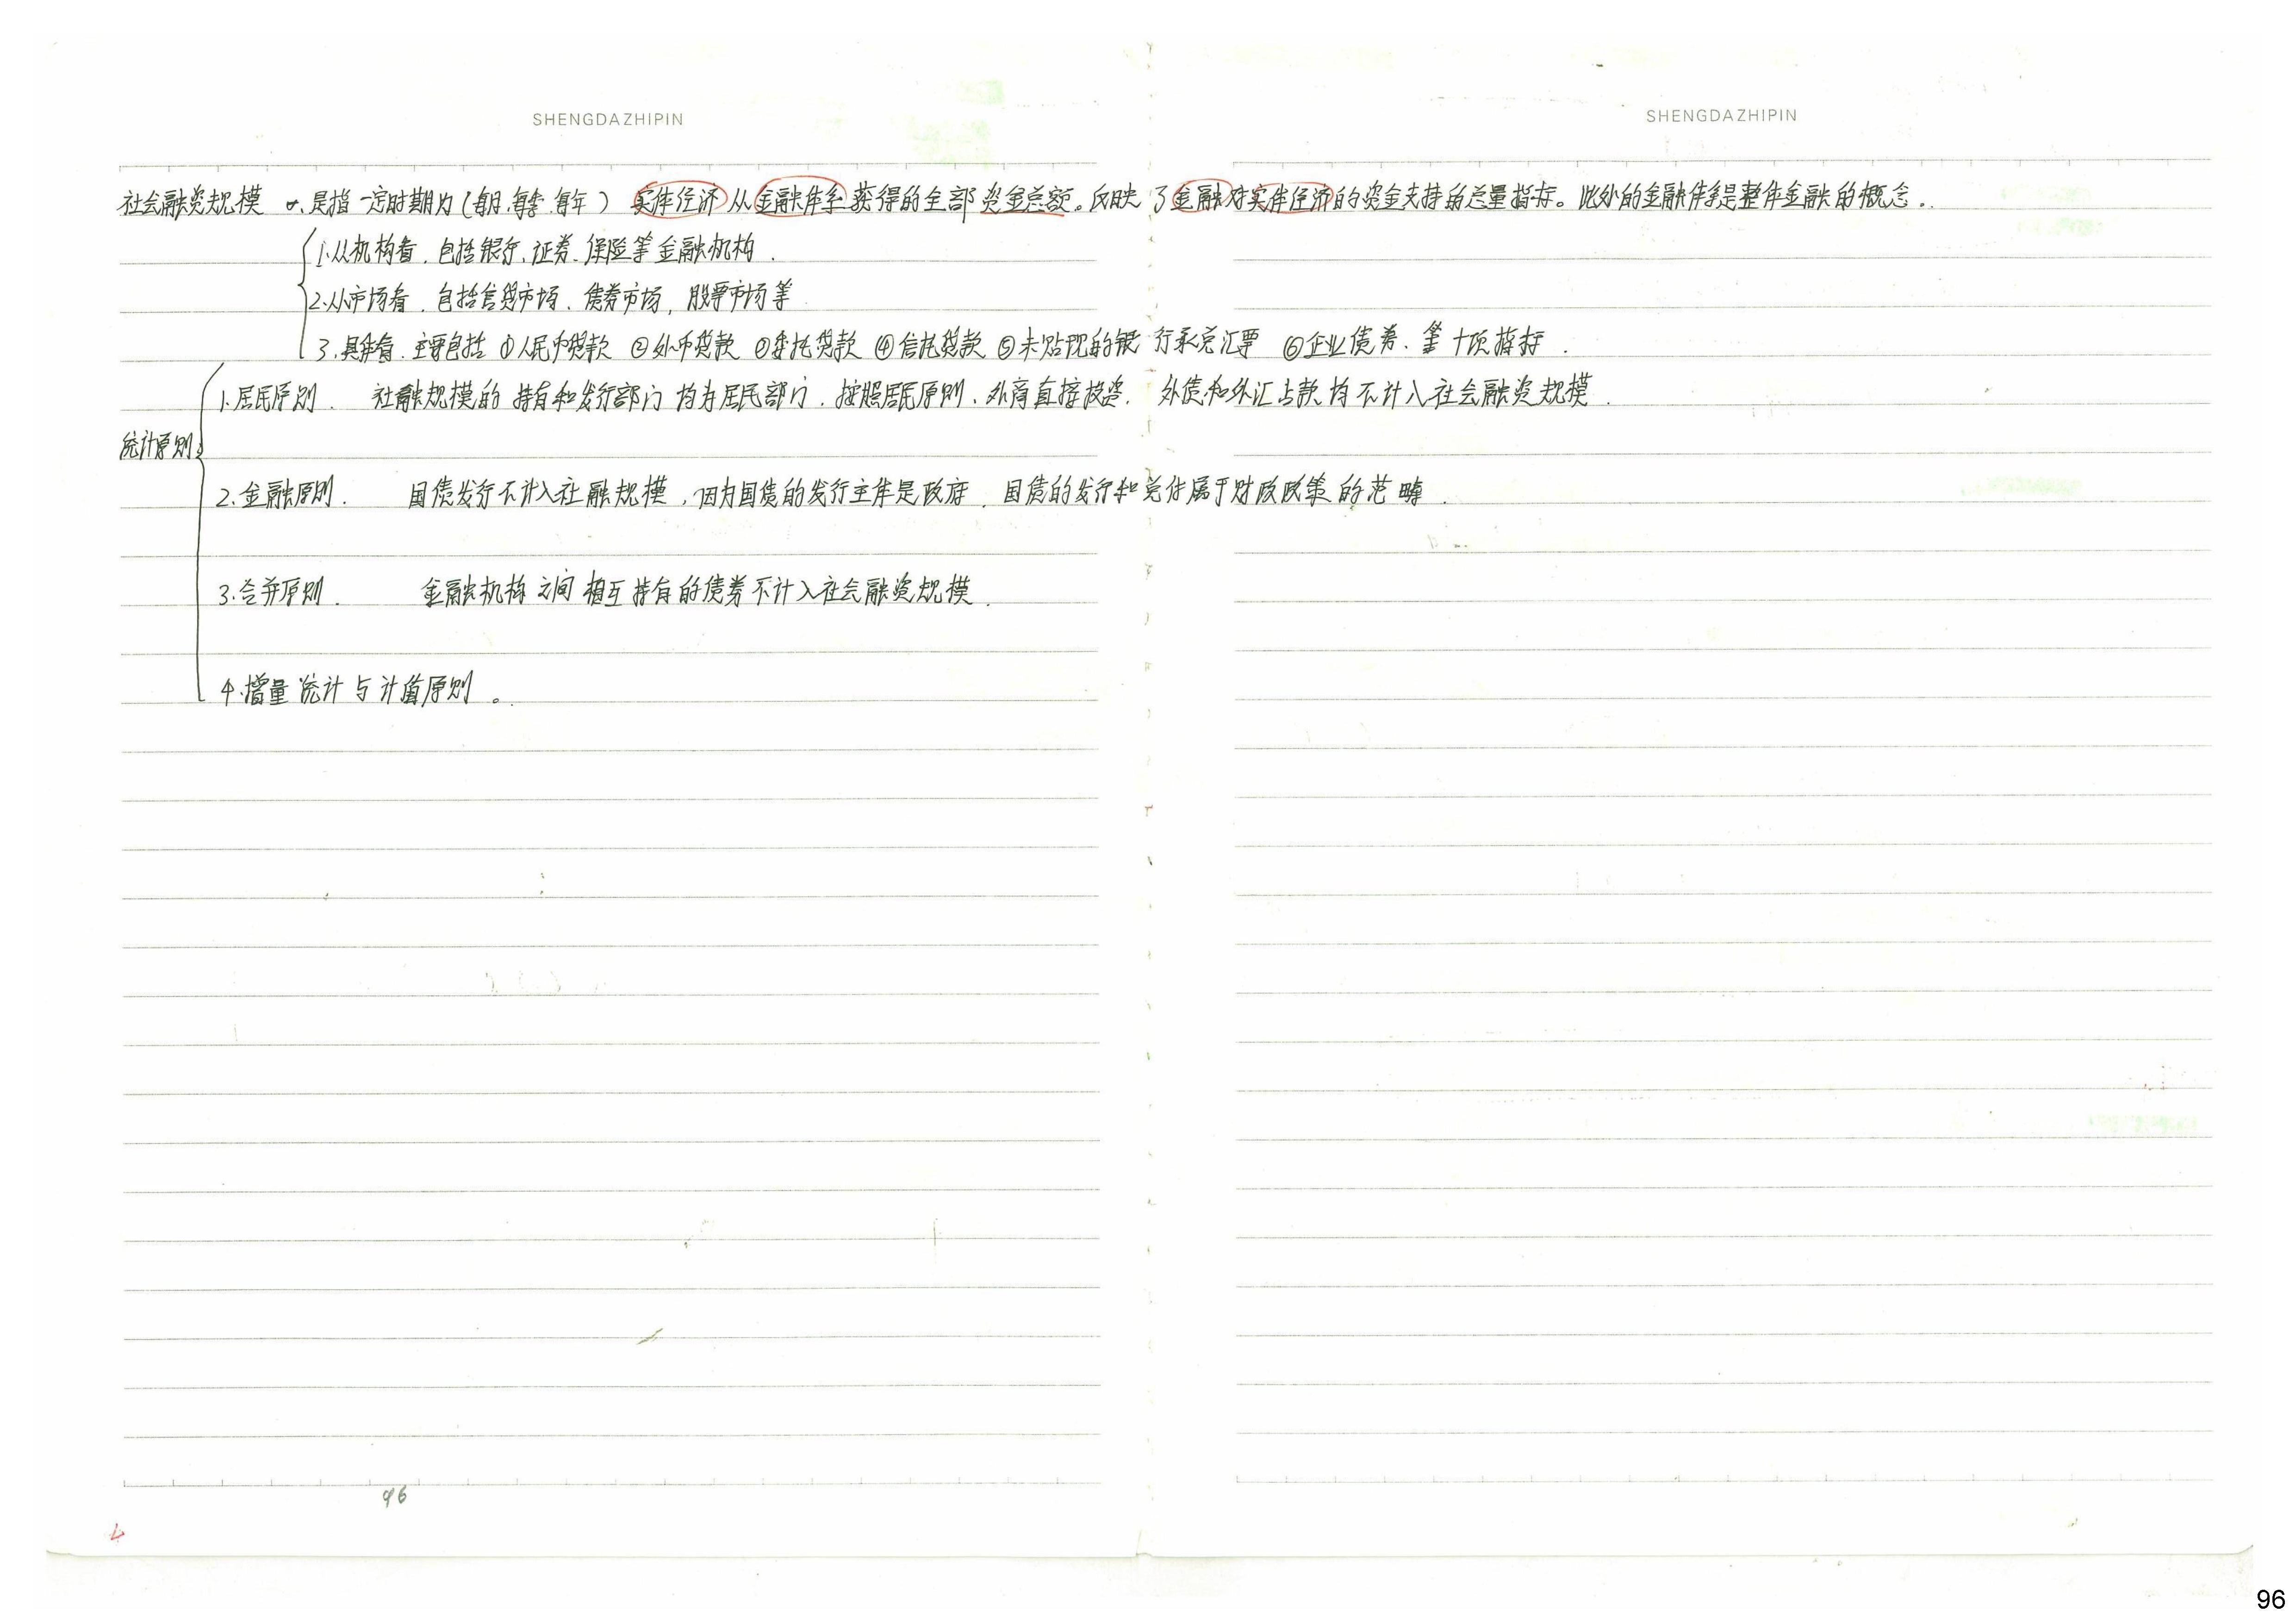 SHENGDAZHIPIN
SHENGDAZHIPIN
社会融资规模 是指一定时期内(每月、每季、每年) 实体经济从金融体系获得的全部资金总额。反映了金融对实体经济的资金支持的总量指标。此处的金融体系是整体金融的概念。
1、从机构看,包括银行、证券、保险等金融机构.
2、从市场看,包括信贷市场、债券市场,股票市场等
3、具体看,主要包括 ①人民币贷款 ②外币贷款 ③委托贷款 ④信托贷款 ⑤未贴现的银行承兑汇票 ⑥企业债券、等十项指标.
1、居民原则. 社融规模的持有和发行部门均为居民部门,按照居民原则、外商直接投资、外债和外汇占款均不计入社会融资规模.
统计原则
2、金融原则. 国债发行不计入社融规模,因为国债的发行主体是政府,国债的发行和兑付属于财政政策的范畴.
3、合并原则. 金融机构之间相互持有的债券不计入社会融资规模.
4、增量统计与计值原则。
96
96